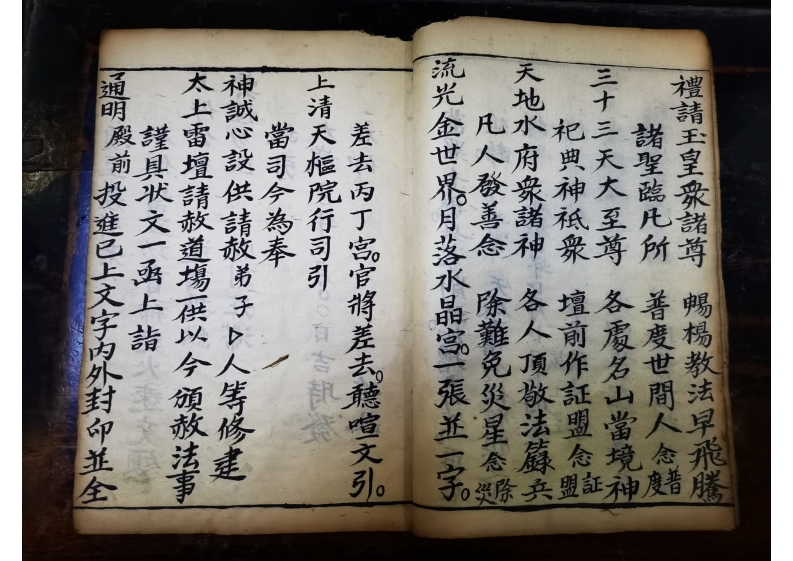 禮請玉皇衆諸尊 暢楊教法早飛騰
諸聖臨凢所 普度世間人 念普度
三十三天大至尊 各處名山當境神
祀典神祇衆 壇前作証盟 念証盟
天地水府衆諸神 各人頂敬法籙兵
凡人發善念 除難免災星 念除災
流光金世界。月落水晶宫。一張並一字。
差去丙丁宫。官將差去。聽喧文引。
上清天樞院行司引
當司今為奉
神誠心設供請赦弟子 人等修建
太上雷壇請赦道場一供以今頒赦法事
謹具状文一凾上詣
通明殿前投進已上文字内外封印並全